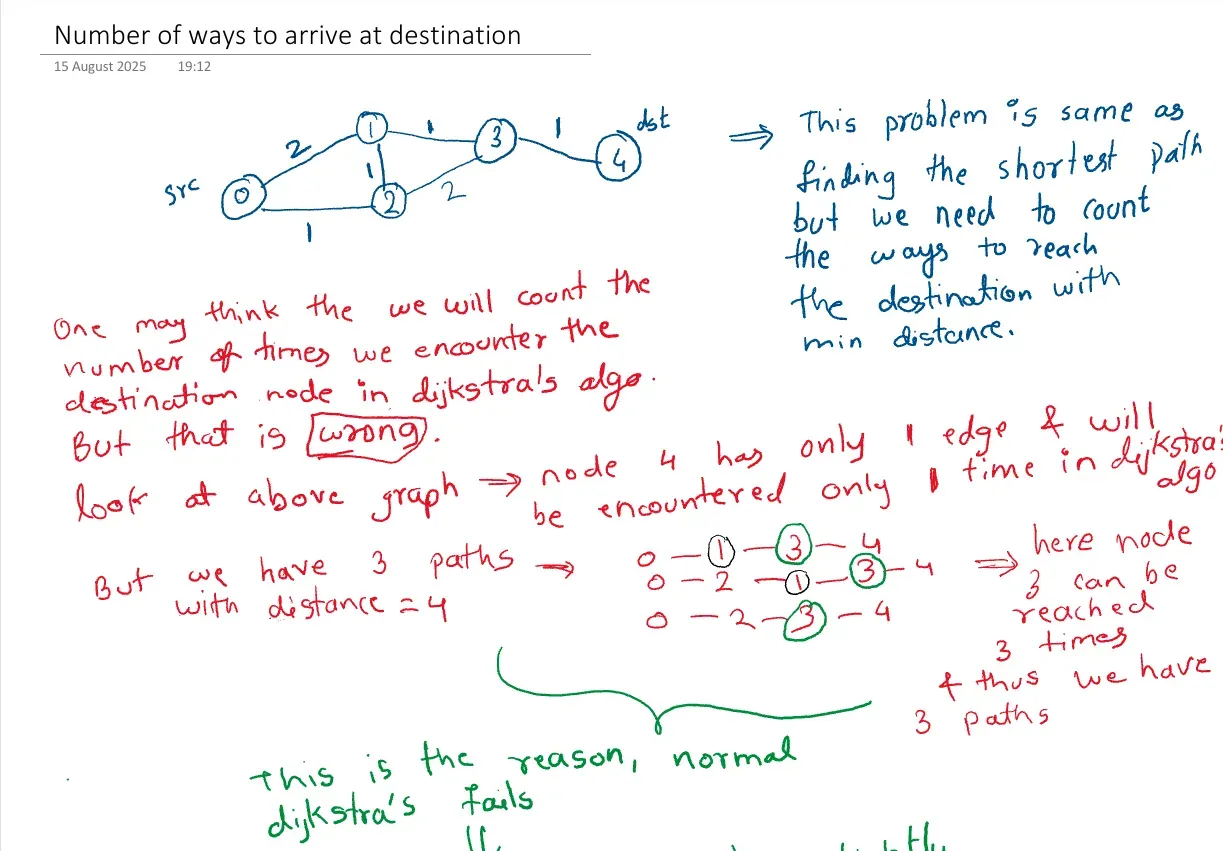 Number of ways to arrive at destination
15 August 2025 19:12
src
0
2
1
1
1
2
2
1
3
1
4
dst
⇒ This problem is same as
finding the shortest path
but we need to count
the ways to reach
the destination with
min distance.
One may think the we will count the
number of times we encounter the
destination node in dijkstra's algo.
But that is wrong.
look at above graph ⇒ node 4 has only 1 edge & will
be encountered only 1 time in dijkstra's
algo
But we have 3 paths →
with distance = 4
0 — 1 — 3 — 4
0 — 2 — 1 — 3 — 4
0 — 2 — 3 — 4
⇒ here node
3 can be
reached
3 times
& thus we have
3 paths
This is the reason, normal
dijkstra's fails